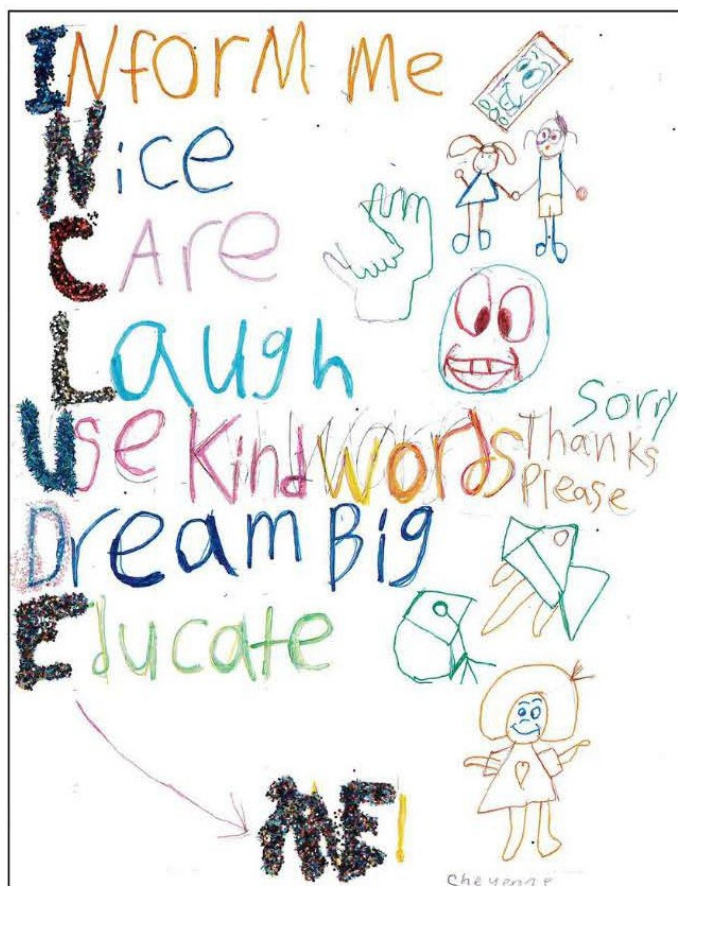 INform Me
Nice
CAre
Laugh
Use Kind words
Sorry
Thanks
Please
Dream Big
Educate
ME!
Cheyenne